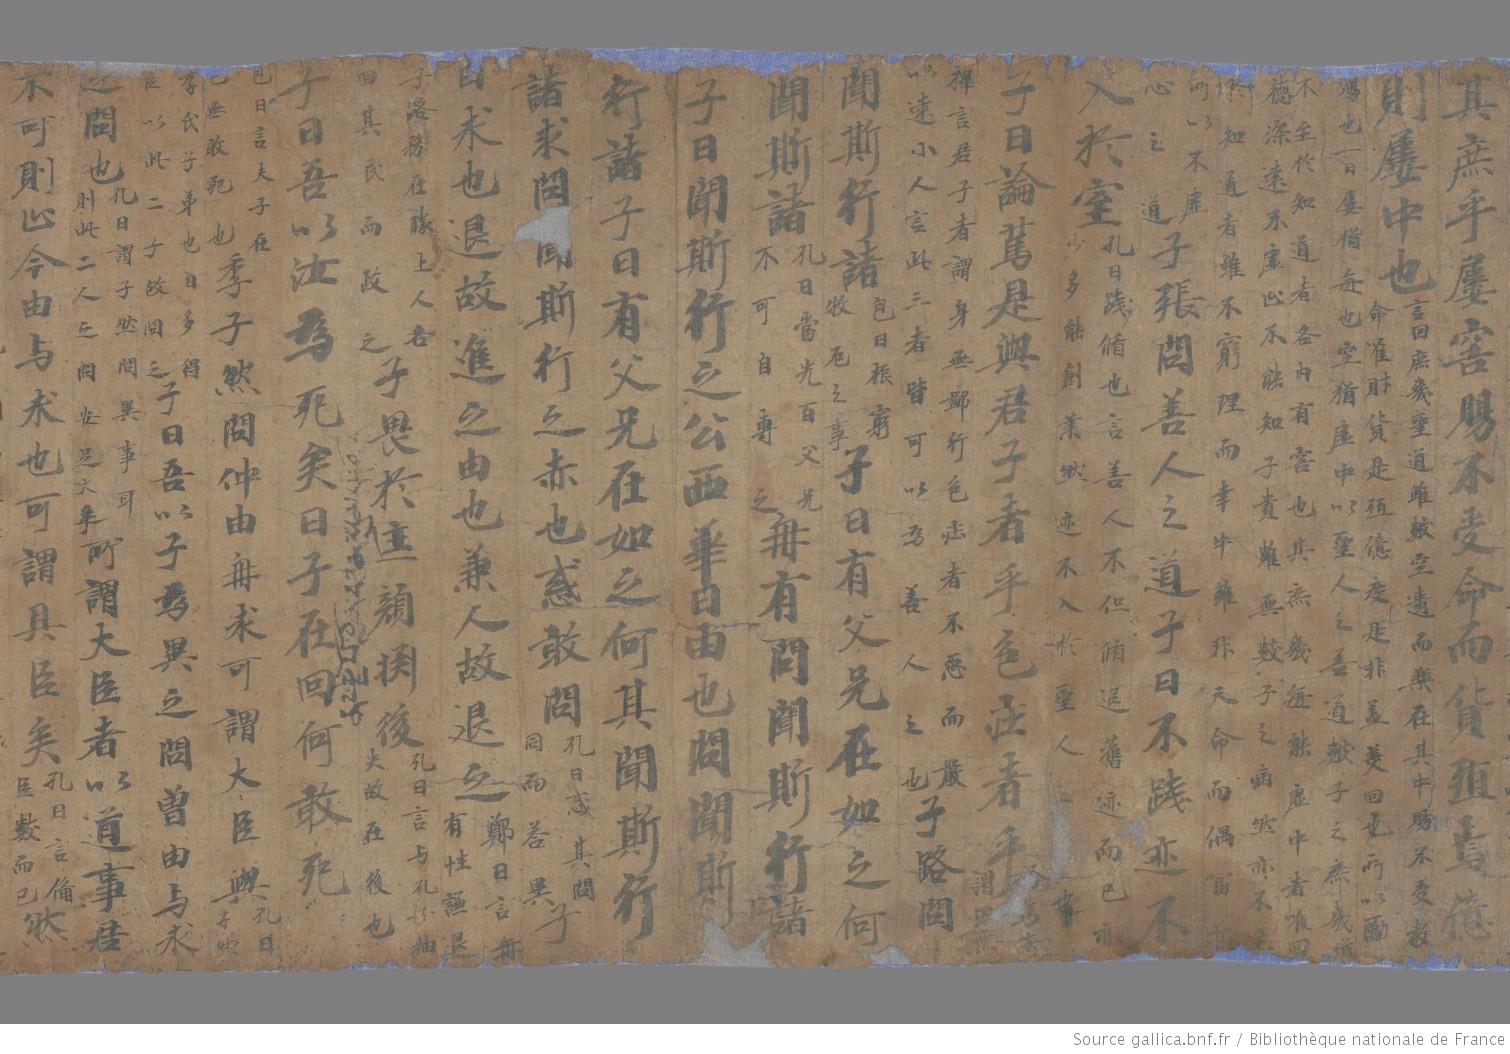 其庶乎屢窖賜不受命而貨殖焉億
則屢中也
言回庶幾聖道雖數空遺而樂在其中賜不受教
命唯財貨是殖億度是非蓋美回也所以勵
賜也一曰屢猶每也空猶虛中以聖人之善道教子之庶幾猶
不至於知道者各內有害也其庶幾每能虛中者唯回
德深遠不虛心不能知子貢雖無數子之病然亦不
知道者雖不窮理而幸中雖非天命而偶富
所以不虛
心之道
子張問善人之道子曰不踐亦不
入於室
孔曰踐循也言善人不但循追舊迹而已亦
少多能創業然亦不入於聖人之
子曰論篤是與君子者乎色莊者乎
謂口無
擇言君子者謂身無鄙行色莊者不惡而嚴
以遠小人言此三者皆可以為善人之也
子路問
聞斯行諸
包曰振窮
救厄之事
子曰有父兄在如之何
聞斯諸
孔曰當先白父兄
不可自專之
冉有問聞斯行諸
子曰聞斯行之公西華曰由也問聞斯
行諸子曰有父兄在如之何其聞斯行
諸求問聞斯行之赤也惑敢問
孔曰惑其問
同而荅異
子
曰求也退故進之由也兼人故退之
鄭曰言冉
有性謙退
子路務在勝上人各
因其民而故之
子畏於匡顏淵後
孔曰言与孔子相
失故在後也
子曰吾以汝為死矣曰子在回何敢死
包曰言夫子在
已無敢死也
季子然問仲由冉求可謂大臣與
孔曰
子然
季氏子弟也曰多得
臣以此二子故問之
子曰吾以子為異之問曾由与求
之問也
孔曰謂子然問異事耳
則此二人之問安足大乎
所謂大臣者以道事君
不可則止今由与求也可謂具臣矣
孔曰言備
臣數而已
然
Source gallica.bnf.fr / Bibliothèque nationale de France